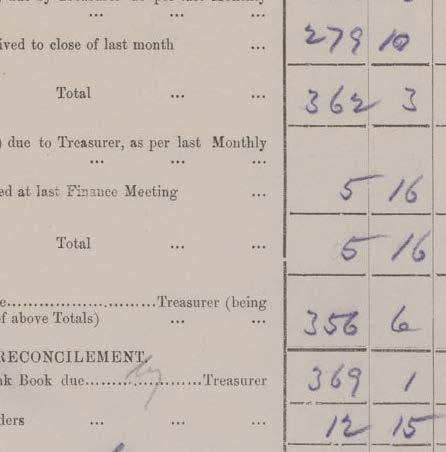 ... ... ...
ived to close of last month ... 279 10
Total ... ... 362 3
) due to Treasurer, as per last Monthly
... ... ...
ed at last Finance Meeting ... 5 16
Total ... ... 5 16
e........................Treasurer (being
f above Totals) ... ... 356 6
RECONCILEMENT.
nk Book due......by......Treasurer 369 1
ders ... ... ... 12 15